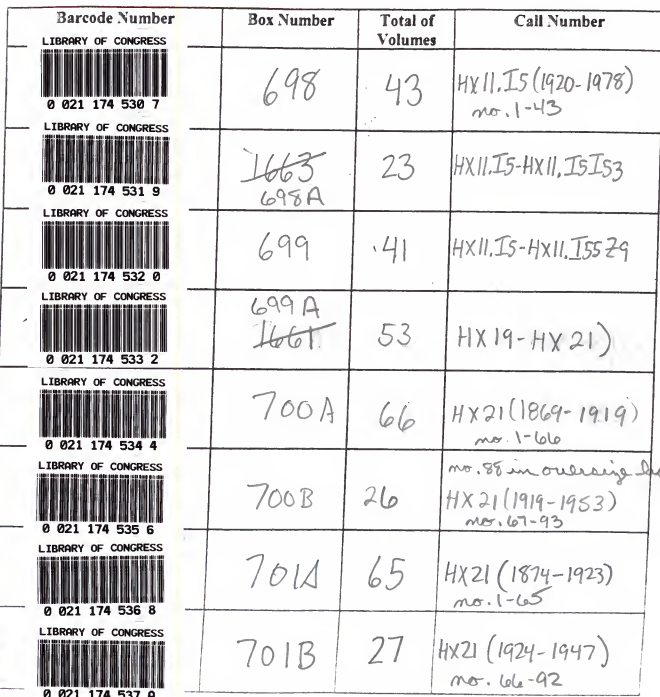 Barcode Number Box Number Total of Volumes Call Number
LIBRARY OF CONGRESS
0 021 174 530 7
698
43
HX11.I5 (1920-1978)
no. 1-43
LIBRARY OF CONGRESS
0 021 174 531 9
1663
698A
23
HX11.I5-HX11.I5I53
LIBRARY OF CONGRESS
0 021 174 532 0
699
41
HX11.I5-HX11.I55Z9
LIBRARY OF CONGRESS
0 021 174 533 2
699A
1661
53
HX19-HX21)
LIBRARY OF CONGRESS
0 021 174 534 4
700A
66
HX21(1869-1919)
no. 1-66
LIBRARY OF CONGRESS
0 021 174 535 6
700B
26
no. 88 in oversize
HX21(1919-1953)
no. 67-93
LIBRARY OF CONGRESS
0 021 174 536 8
701A
65
HX21 (1874-1923)
no. 1-65
LIBRARY OF CONGRESS
0 021 174 537
701B
27
HX21 (1924-1947)
no. 66-92